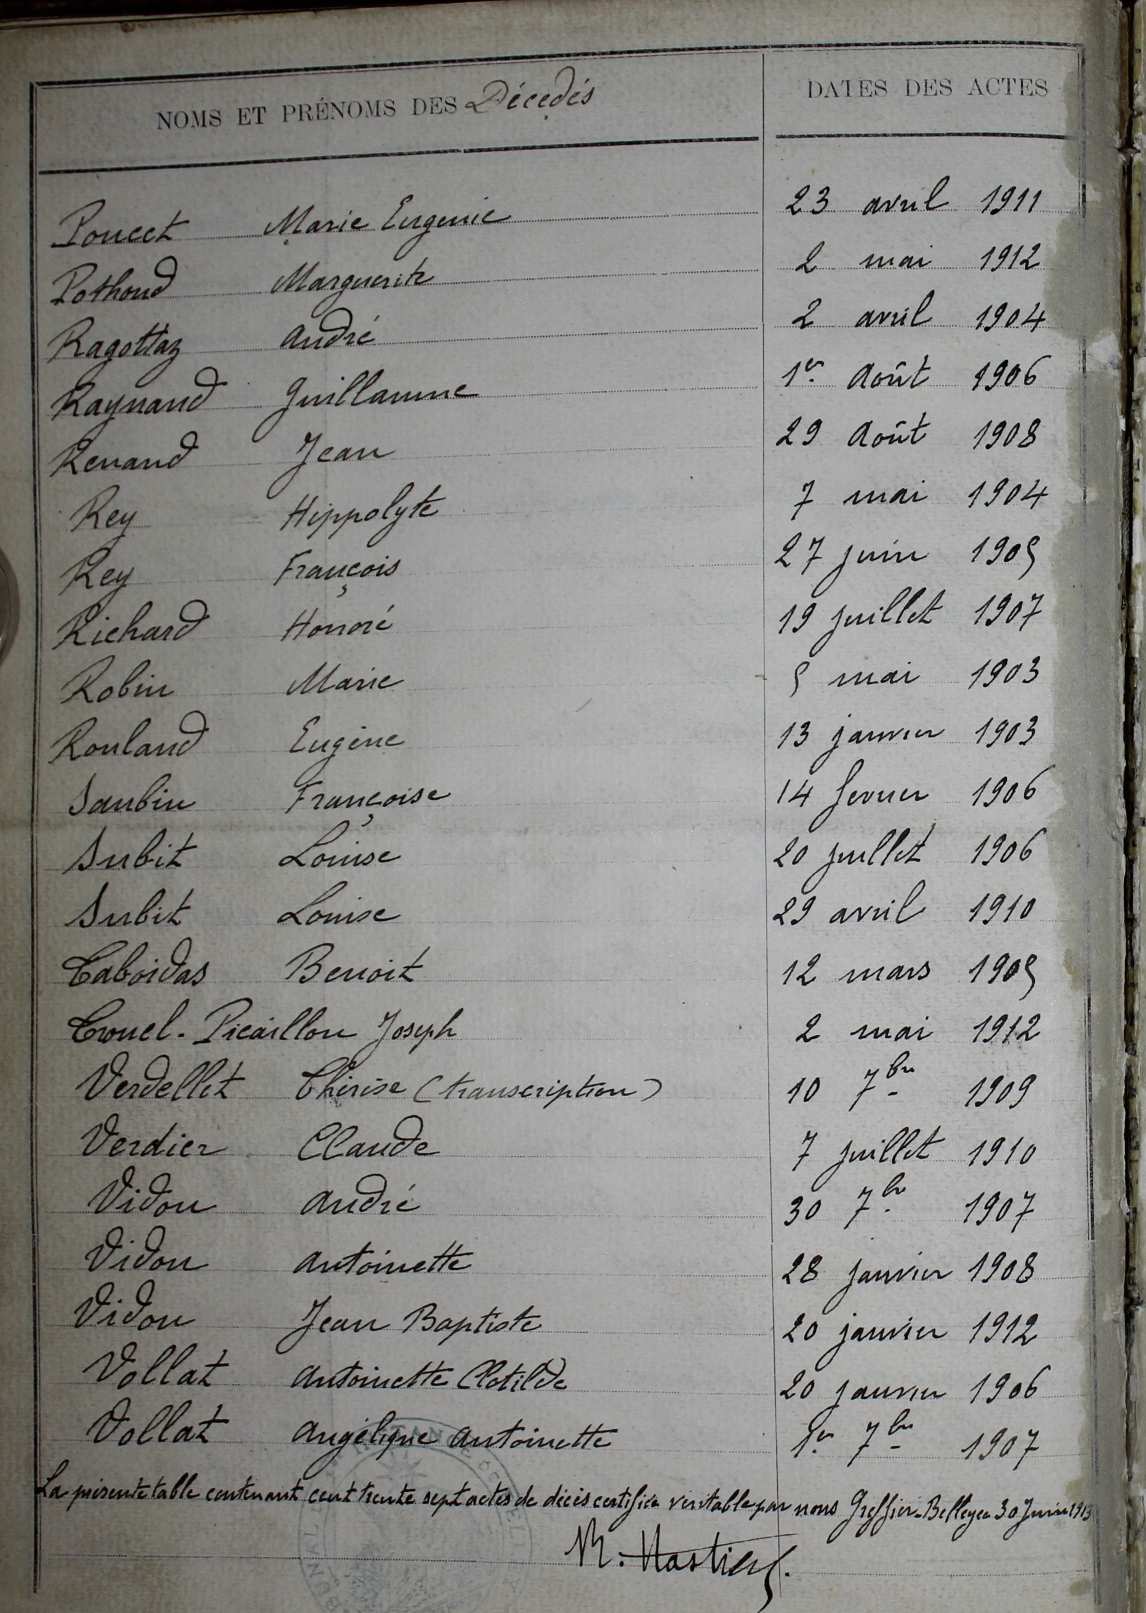 NOMS ET PRÉNOMS DES Décedés DATES DES ACTES
Poncet Marie Eugenie 23 avril 1911
Pothoud Marguerite 2 mai 1912
Ragottaz André 2 avril 1904
Raynaud Guillaume 1er Août 1906
Renaud Jean 29 Août 1908
Rey Hippolyte 7 mai 1904
Rey François 27 juin 1905
Richard Honoré 19 juillet 1907
Robin Marie 5 mai 1903
Rouland Eugène 13 janvier 1903
Saubin Françoise 14 fevrier 1906
Subit Louise 20 juillet 1906
Subit Louise 29 avril 1910
Taboidas Benoit 12 mars 1905
Trouel-Picaillou Joseph 2 mai 1912
Verdellet Thérèse (transcription) 10 7bre 1909
Verdier Claude 7 juillet 1910
Vidou André 30 7bre 1907
Vidou Antoinette 28 janvier 1908
Vidou Jean Baptiste 20 janvier 1912
Vollat Antoinette Clotilde 20 janvier 1906
Vollat Angélique Antoinette 1er 7bre 1907
La présente table contenant cent trente sept actes de décès certifiée véritable par nous Greffier. Belley le 30 Juin 1913